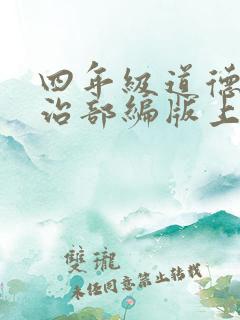 四年级道德
治部编版上
雙瓏
未经同意禁止转载